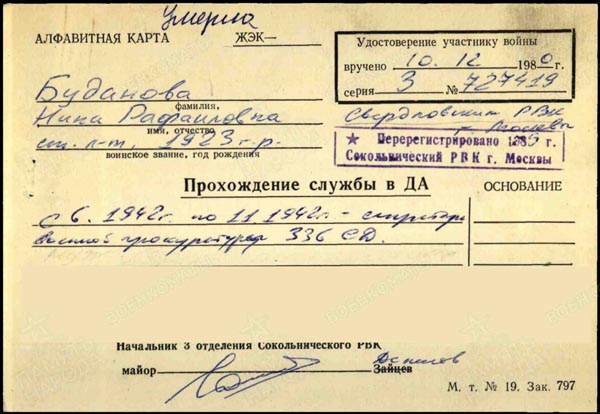 Умерла
АЛФАВИТНАЯ КАРТА ЖЭК—
Удостоверение участнику войны
вручено 10.12 1980 г.
серия 3 № 727419
Буданова
фамилия,
Нина Рафаиловна
имя, отчество
ст. л-т, 1923 г.р.
воинское звание, год рождения
Свердловским РВК
г. Москвы
★ Перерегистрировано 1985 г.
Сокольнический РВК г. Москвы
Прохождение службы в ДА ОСНОВАНИЕ
с 6. 1942г. по 11 1942г. - секретарь
военной прокуратуры 336 СД.
Начальник 3 отделения Сокольнического РВК
майор Зайцев
М. т. № 19. Зак. 797